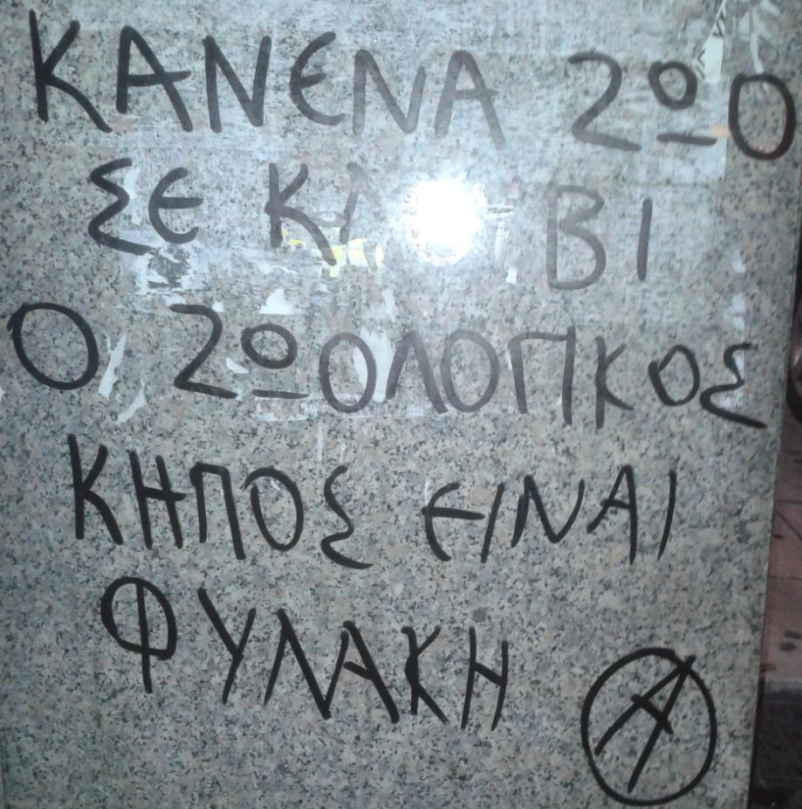 ΚΑΝΕΝΑ ΖΩΟ
ΣΕ
Ο ΖΩΟΛΟΓΙΚΟΣ
ΚΗΠΟΣ ΕΙΝΑΙ
ΦΥΛΑΚΗ Α